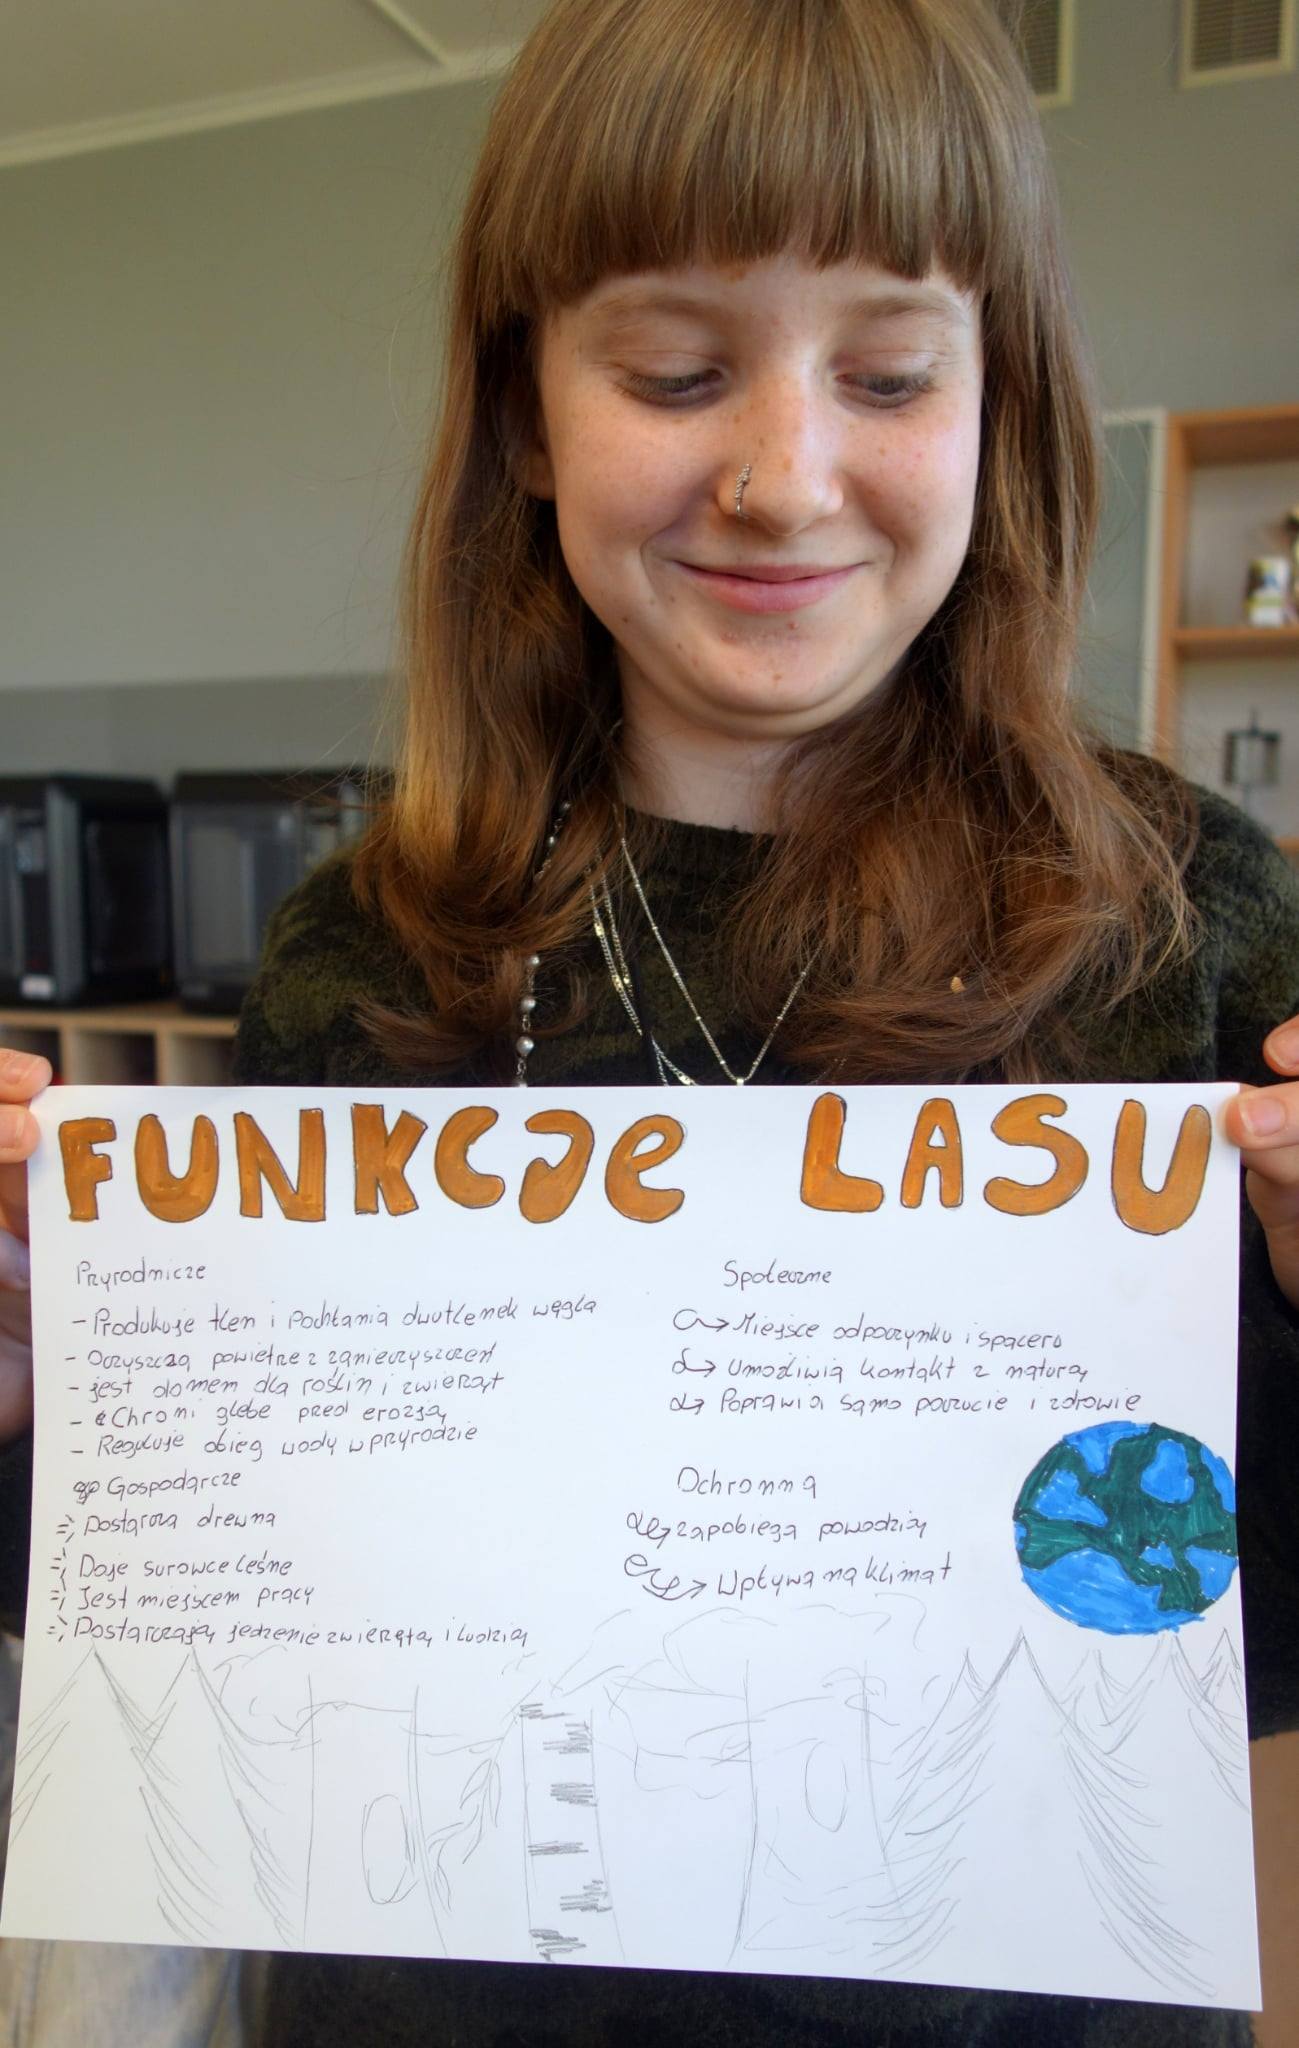 FUNKCJE LASU
Przyrodnicze
- Produkuje tlen i pochłania dwutlenek węgla
- Oczyszcza powietrze z zanieczyszczeń
- jest domem dla roślin i zwierząt
- Chroni glebe przed erozją
- Reguluje obieg wody w przyrodzie
Gospodarcze
Dostarcza drewna
Daje surowce leśne
Jest miejscem pracy
Dostarczają jedzenie zwierzętą i ludzią
Społeczne
Miejsce odpoczynku i spaceru
Umożliwia kontakt z naturą
Poprawia samo poczucie i zdrowie
Ochronna
zapobiega powodzią
Wpływa na klimat